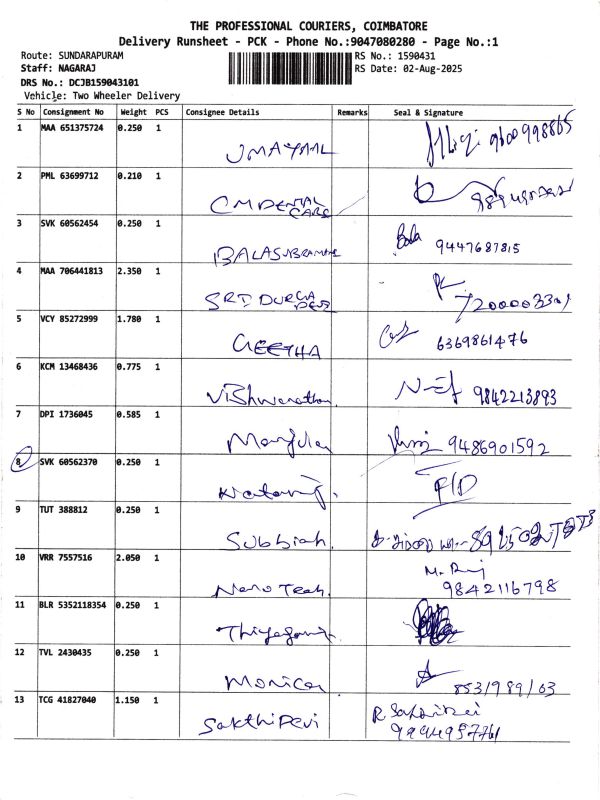 THE PROFESSIONAL COURIERS, COIMBATORE
Delivery Runsheet - PCK - Phone No.:9047080280 - Page No.:1
Route: SUNDARAPURAM
RS No.: 1590431
Staff: NAGARAJ
RS Date: 02-Aug-2025
DRS No.: DCJB159043101
Vehicle: Two Wheeler Delivery
S No Consignment No Weight PCS Consignee Details Remarks Seal & Signature
1 MAA 651375724 0.250 1
UMAYAAL 9600998865
2 PML 63699712 0.210 1
CM DENTAL
CARE
3 SVK 60562454 0.250 1
BALASUBRAMANI Bala 9447687815
4 MAA 706441813 2.350 1
SRI DURGA
5 VCY 85272999 1.780 1
GEETHA 6369861476
6 KCM 13468436 0.775 1
Vishwanathan. 9842213893
7 DPI 1736045 0.585 1
Manjula 9486901592
8 SVK 60562370 0.250 1
Nataraj. F/D
9 TUT 388812 0.250 1
Subbiah.
10 VRR 7557516 2.050 1
Nano Tech. M. Raj
9842116798
11 BLR 5352118354 0.250 1
Thiyagaraj.
12 TVL 2430435 0.250 1
Monica. 8531989163
13 TCG 41827040 1.150 1
Sakthi Devi